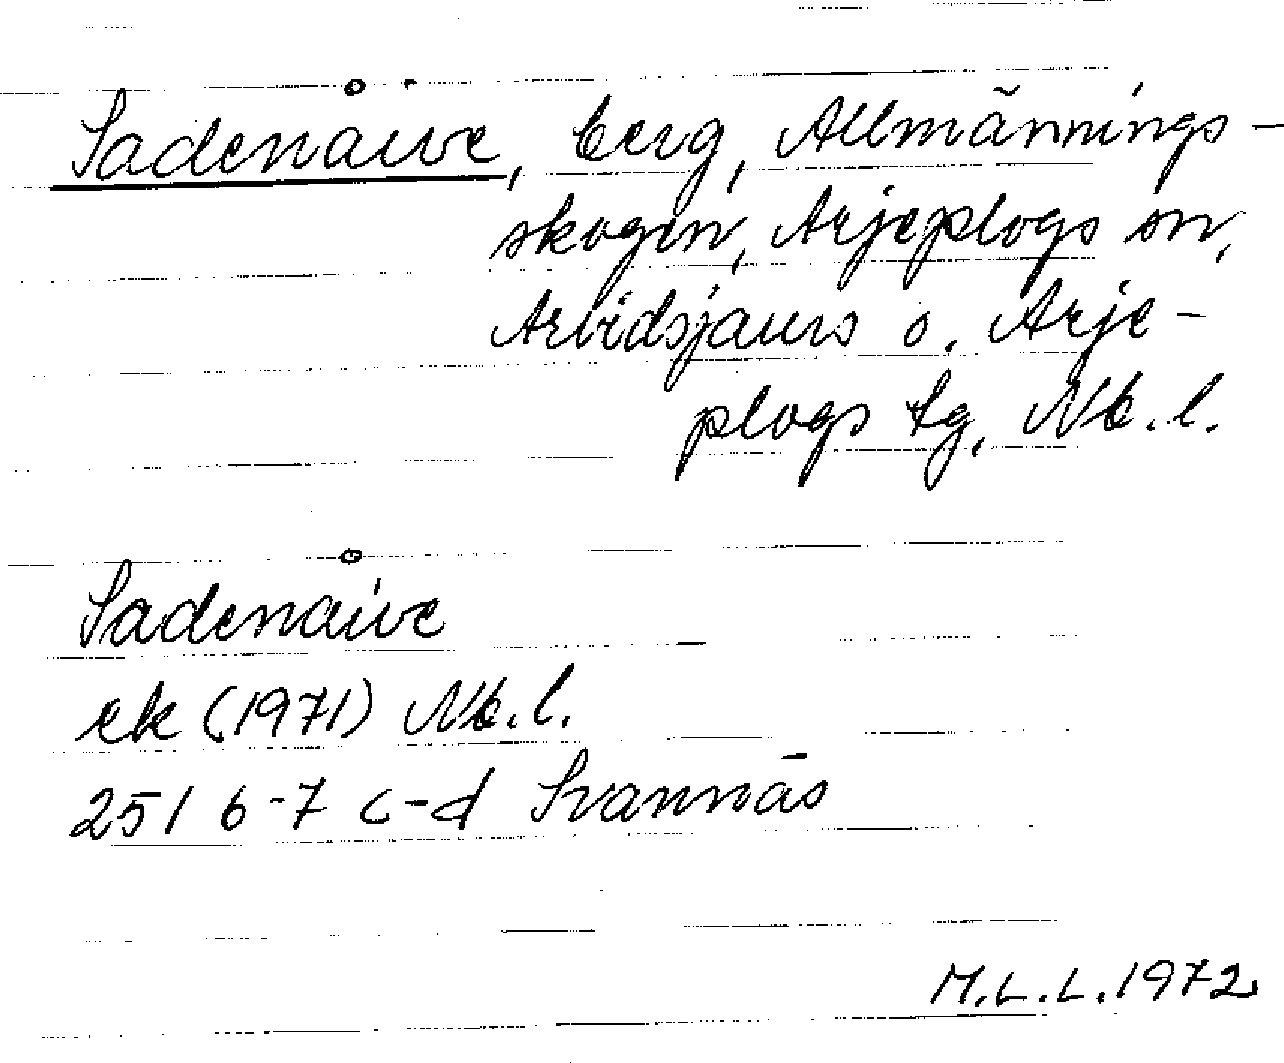 Sadenåive, berg, Allmännings-
skogen, Arjeplogs sn,
Arvidsjaurs o. Arje-
plogs tg, Nb.l.
Sadenåive
ek (1971) Nb.l.
251 6-7 c-d Svannäs
M.L.L. 1972